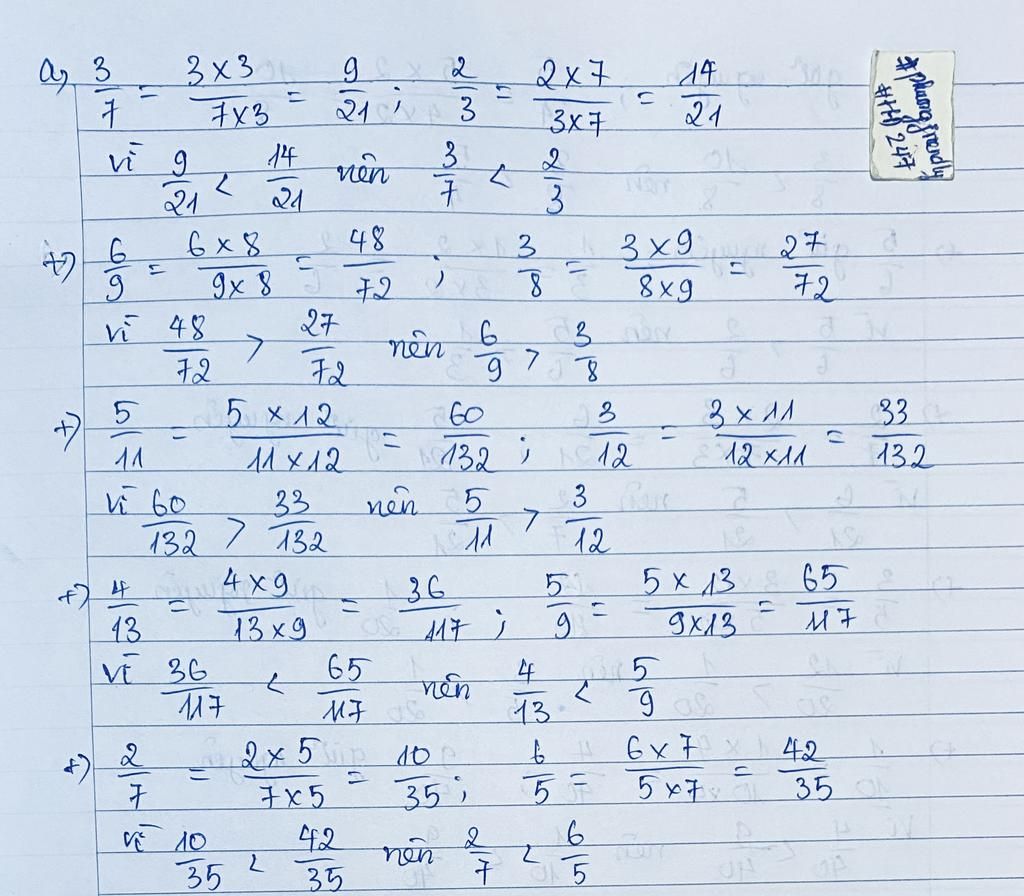 a, 3/7 = 3 x 3/7 x 3 = 9/21 ; 2/3 = 2 x 7/3 x 7 = 14/21
vì 9/21 < 14/21 nên 3/7 < 2/3
+) 6/9 = 6 x 8/9 x 8 = 48/72 ; 3/8 = 3 x 9/8 x 9 = 27/72
vì 48/72 > 27/72 nên 6/9 > 3/8
+) 5/11 = 5 x 12/11 x 12 = 60/132 ; 3/12 = 3 x 11/12 x 11 = 33/132
vì 60/132 > 33/132 nên 5/11 > 3/12
+) 4/13 = 4 x 9/13 x 9 = 36/117 ; 5/9 = 5 x 13/9 x 13 = 65/117
vì 36/117 < 65/117 nên 4/13 < 5/9
+) 2/7 = 2 x 5/7 x 5 = 10/35 ; 6/5 = 6 x 7/5 x 7 = 42/35
vì 10/35 < 42/35 nên 2/7 < 6/5
247